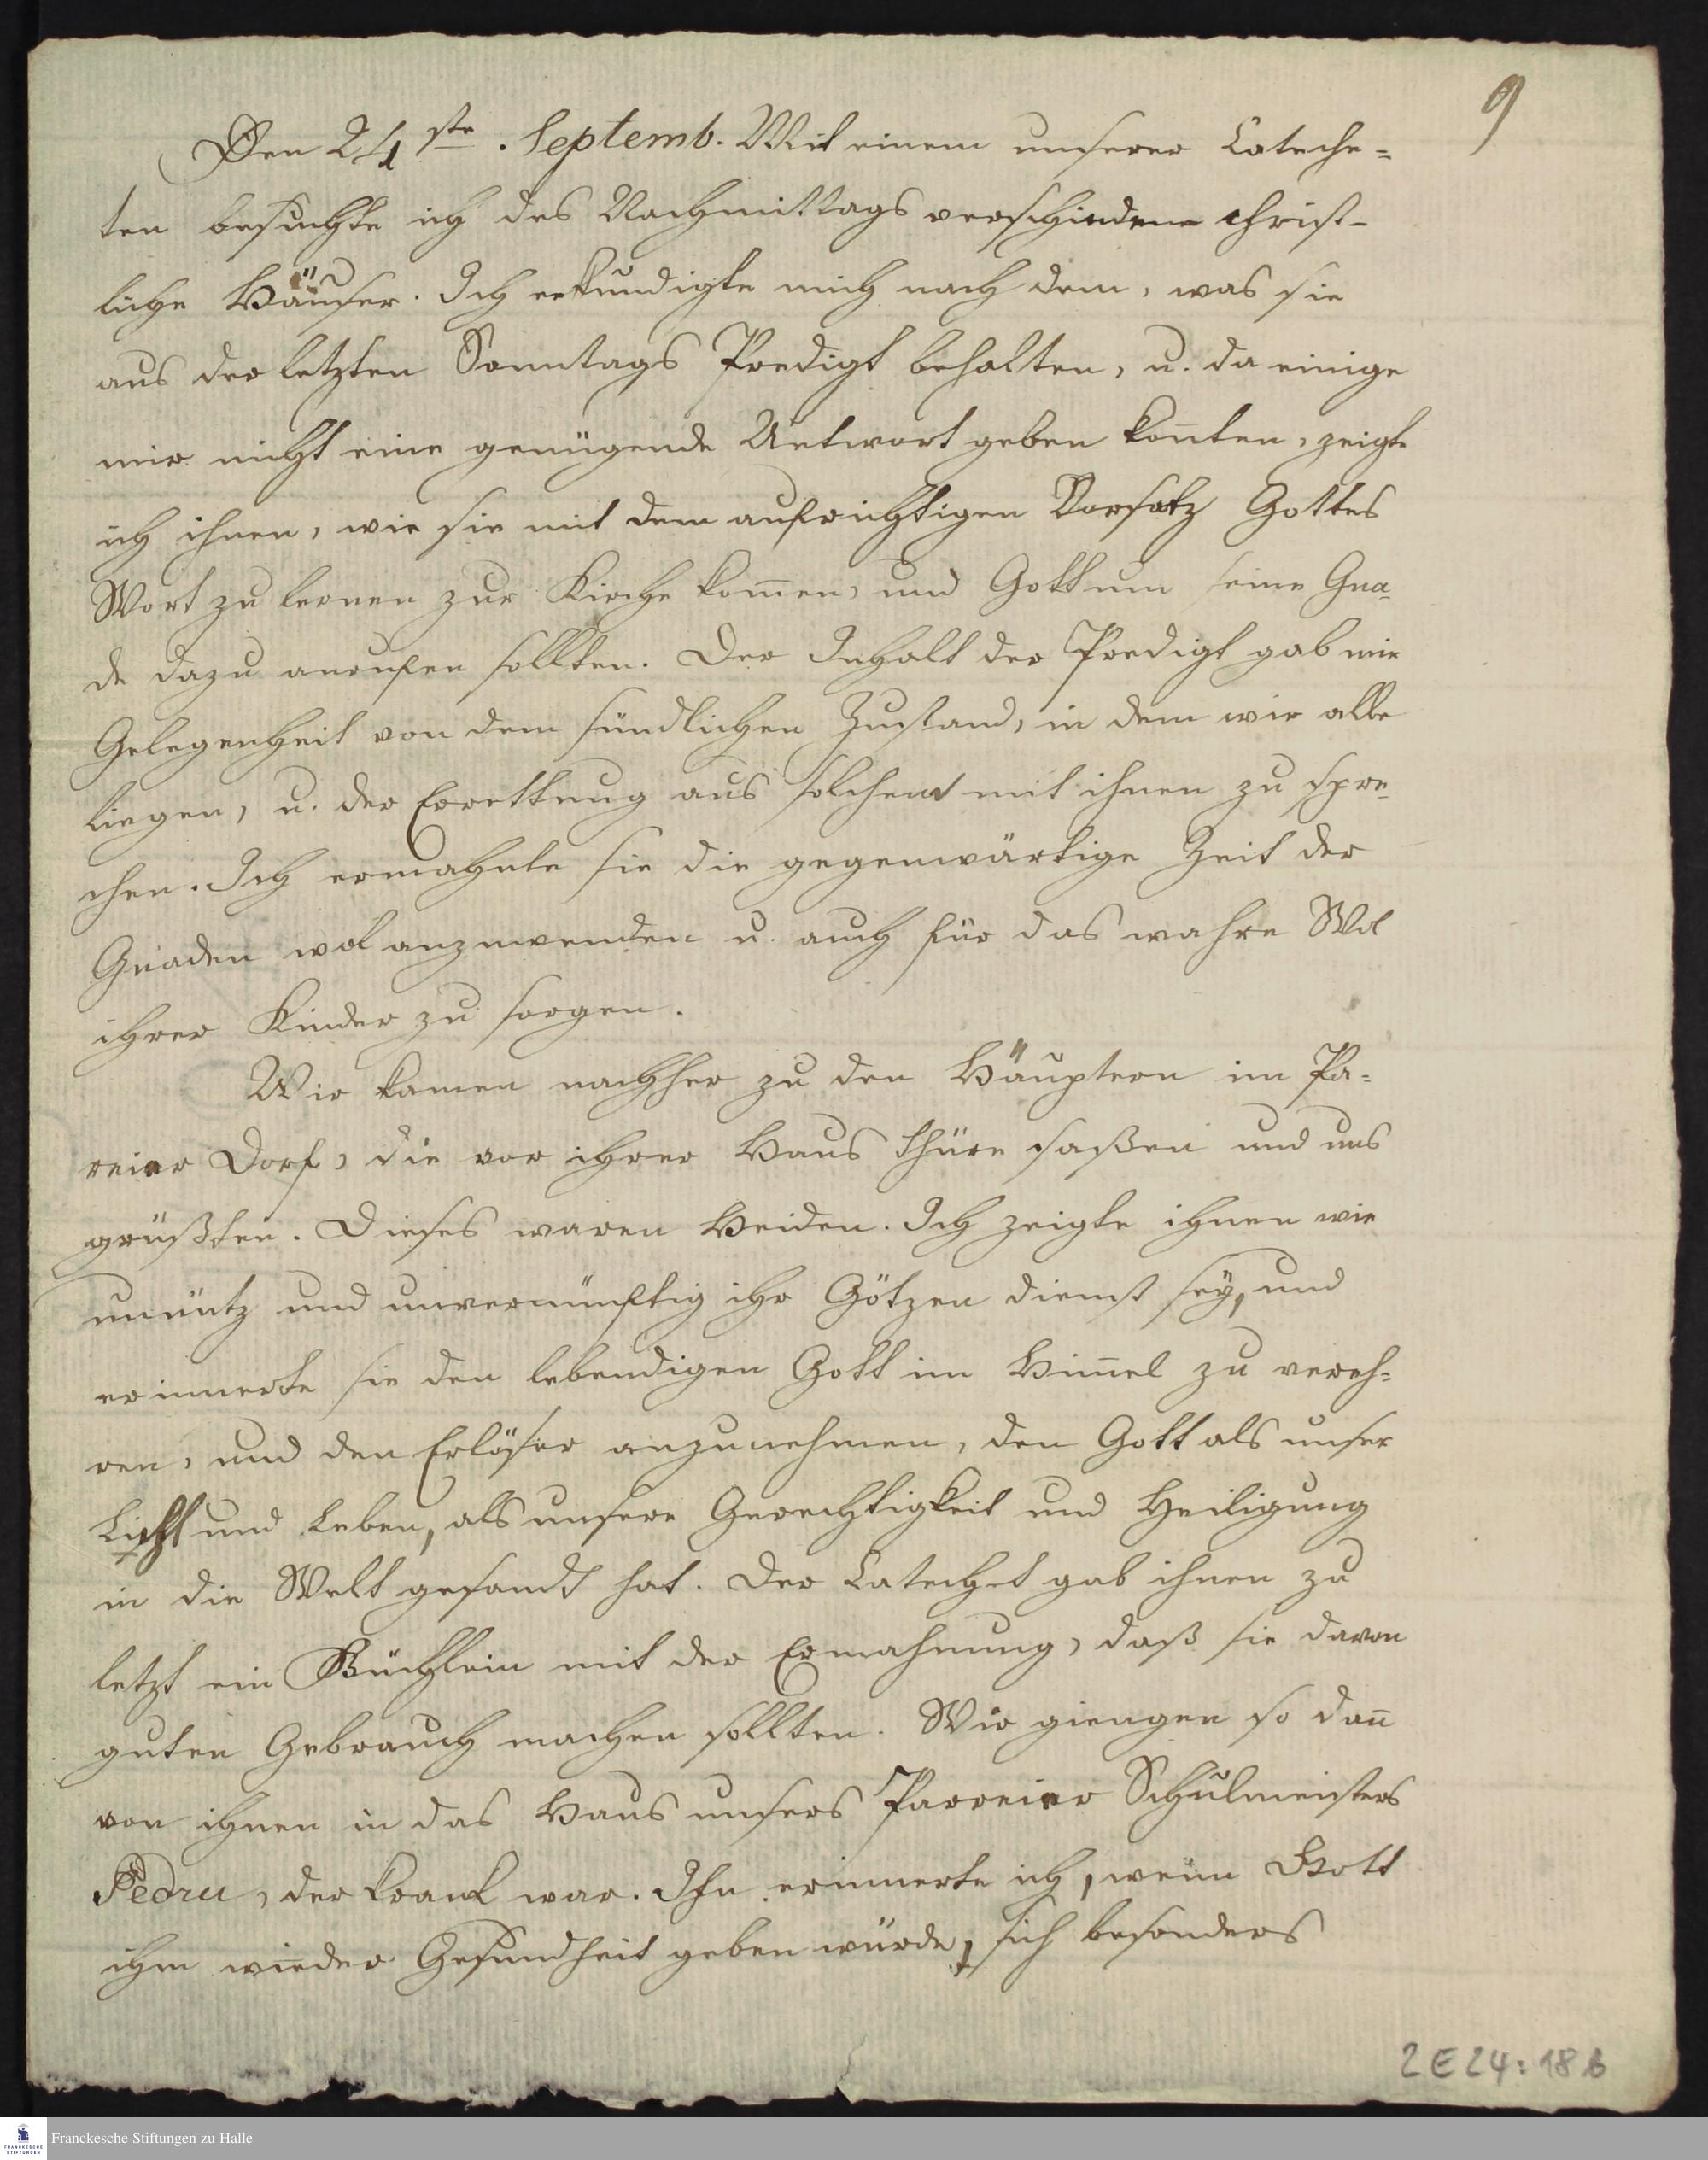 9
Den 24ste. Septemb. Mit einem unserer Cateche-
ten besuchte ich des Nachmittags verschiedene christ-
liche Häuser. Ich erkundigte mich nach dem, was sie
aus der letzten Sonntags Predigt behalten, u. da einige
mir nicht eine genügende Antwort geben konten, zeigte
ich ihnen, wie sie mit dem aufrichtigen Vorsatz Gottes
Wort zu lernen zur Kirche komen, und Gott um seine Gna-
de dazu anrufen sollten. Der Inhalt der Predigt gab mir
Gelegenheit von dem sündlichen Zustand, in dem wir alle
liegen, u. der Errettung aus solchem mit ihnen zu spre-
chen. Ich ermahnte sie die gegenwärtige Zeit der
Gnaden wol anzuwenden u. auch für das wahre Wol
ihrer Kinder zu sorgen.
Wir kamen nachher zu den Häuptern im Pa-
reier Dorf, die vor ihrer Haus thüre saßen und uns
grüßten. Dieses waren Heiden. Ich zeigte ihnen wie
unnütz und unvernünftig ihr Götzen dienst sey, und
erinnerte sie den lebendigen Gott im Himel zu vereh-
ren, und den Erlöser anzunehmen, den Gott als unser
Licht und Leben, als unsere Gerechtigkeit und Heiligung
in die Welt gesandt hat. Der Catechet gab ihnen zu
letzt ein Büchlein mit der Ermahnung, daß sie davon
guten Gebrauch machen sollten. Wir giengen so dan
von ihnen in das Haus unsers Parreier Schulmeisters
Pedru, der krank war. Ihn erinnerte ich, wenn Gott
ihm wieder Gesundheit geben würde, sich besonders
2 E 24 : 18 b
FRANCKESCHE STIFTUNGEN
Franckesche Stiftungen zu Halle